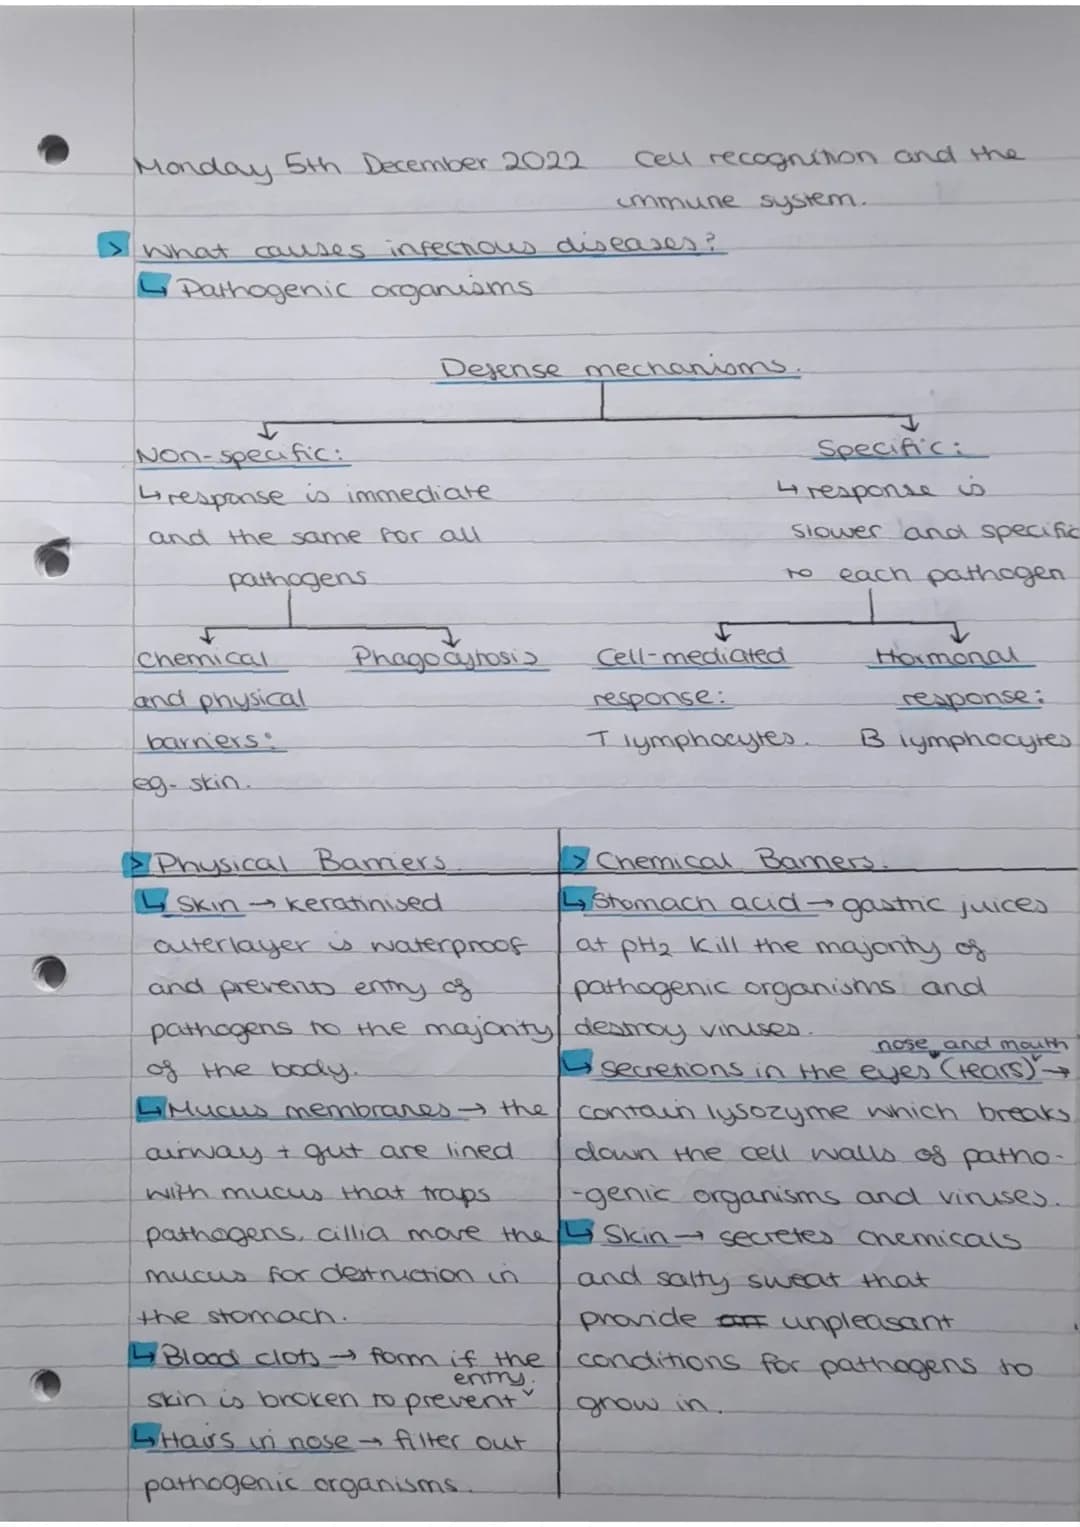 Monday 5th December 2022 Cell recognition and the
immune system.
> What causes infectious diseases?
↳ Pathogenic organisms
Defense mechanisms.
Non-specific:
↳ response is immediate
and the same for all
pathogens
Specific:
↳ response is
slower and specific
to each pathogen
Chemical
and physical
barriers:
eg- skin.
Phagocytosis
Cell-mediated
response:
T lymphocytes.
Hormonal
response:
B lymphocytes
> Physical Barriers.
↳ Skin → keratinised
outerlayer is waterproof
and prevents entry of
pathogens to the majority
of the body.
↳ Mucus membranes → the
airway + gut are lined
with mucus that traps
pathogens, cillia move the
mucus for destruction in
the stomach.
↳ Blood clots → form if the
skin is broken to prevent entry.
↳ Hairs in nose → filter out
pathogenic organisms.
> Chemical Barriers.
↳ Stomach acid → gastric juices
at pH2 kill the majority of
pathogenic organisms and
destroy viruses.
↳ Secretions in the eyes (tears) nose and mouth →
contain lysozyme which breaks
down the cell walls of patho-
-genic organisms and viruses.
↳ Skin → secretes chemicals
and salty sweat that
provide unpleasant
conditions for pathogens to
grow in.